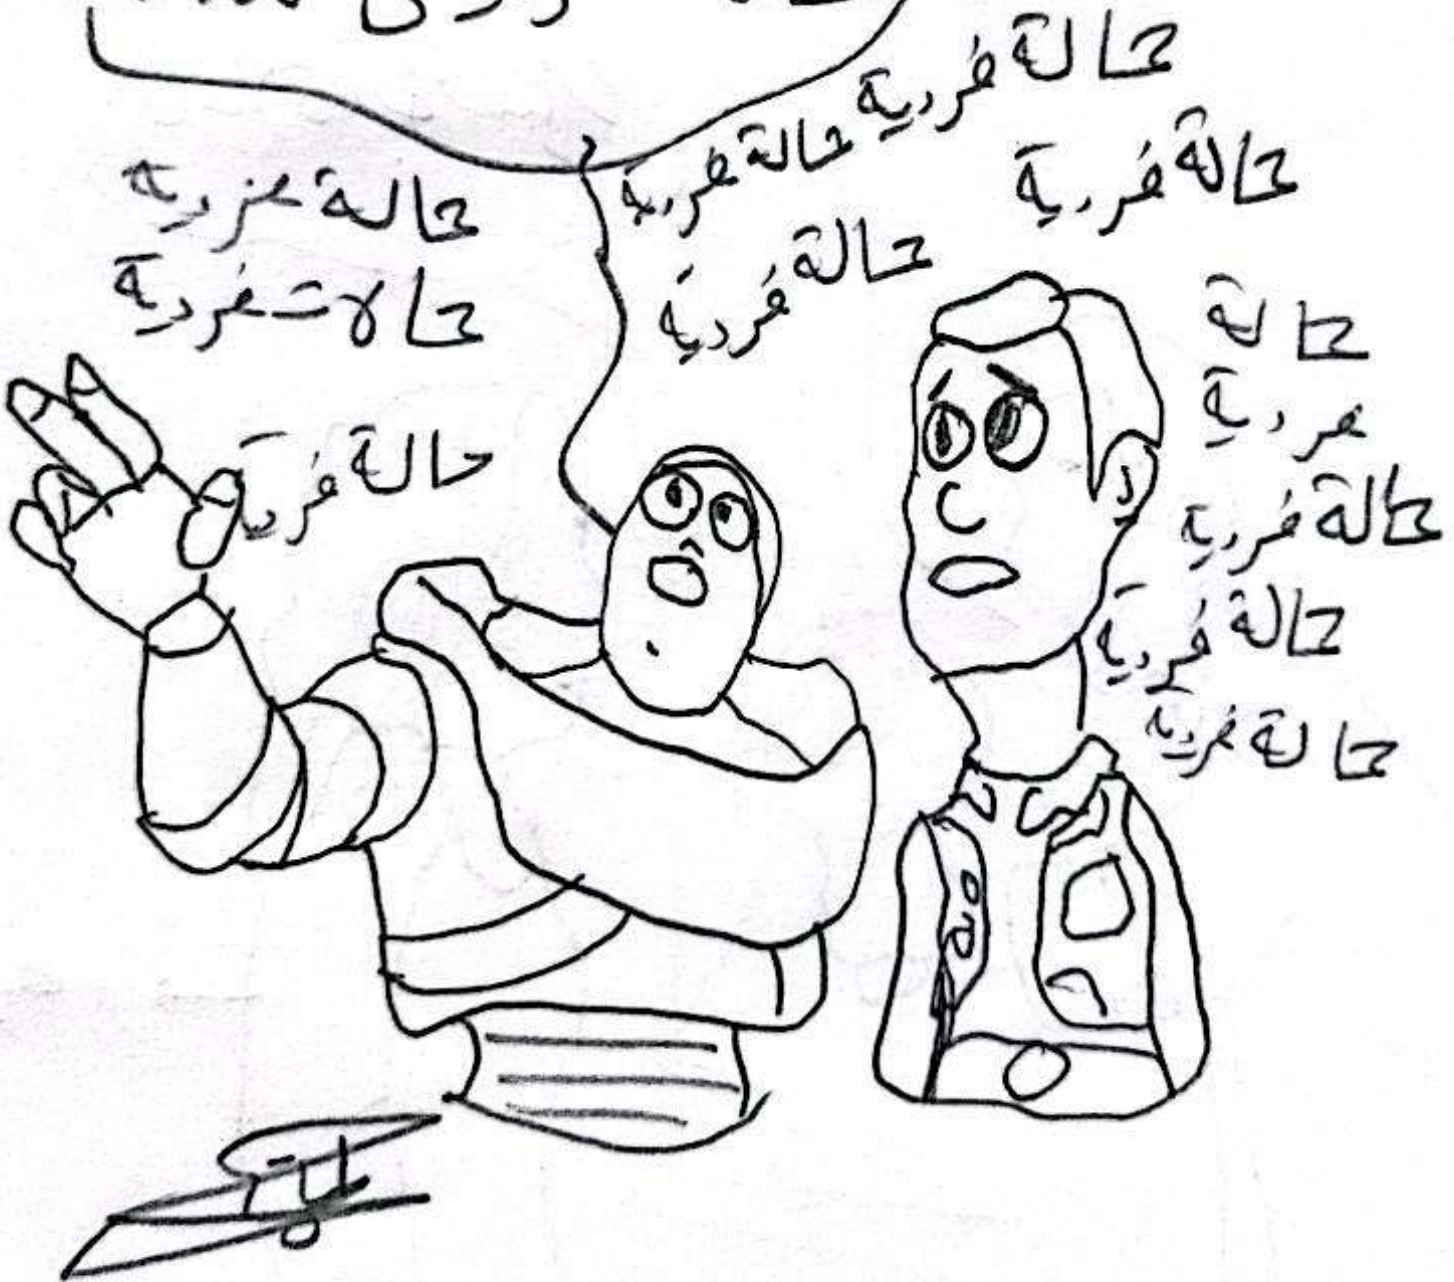 حالة فردية
حالة فردية
حالة فردية
حالة فردية
حالة فردية
حالات فردية
حالة
فردية
حالة فردية
حالة فردية
حالة فردية
حالة فردية